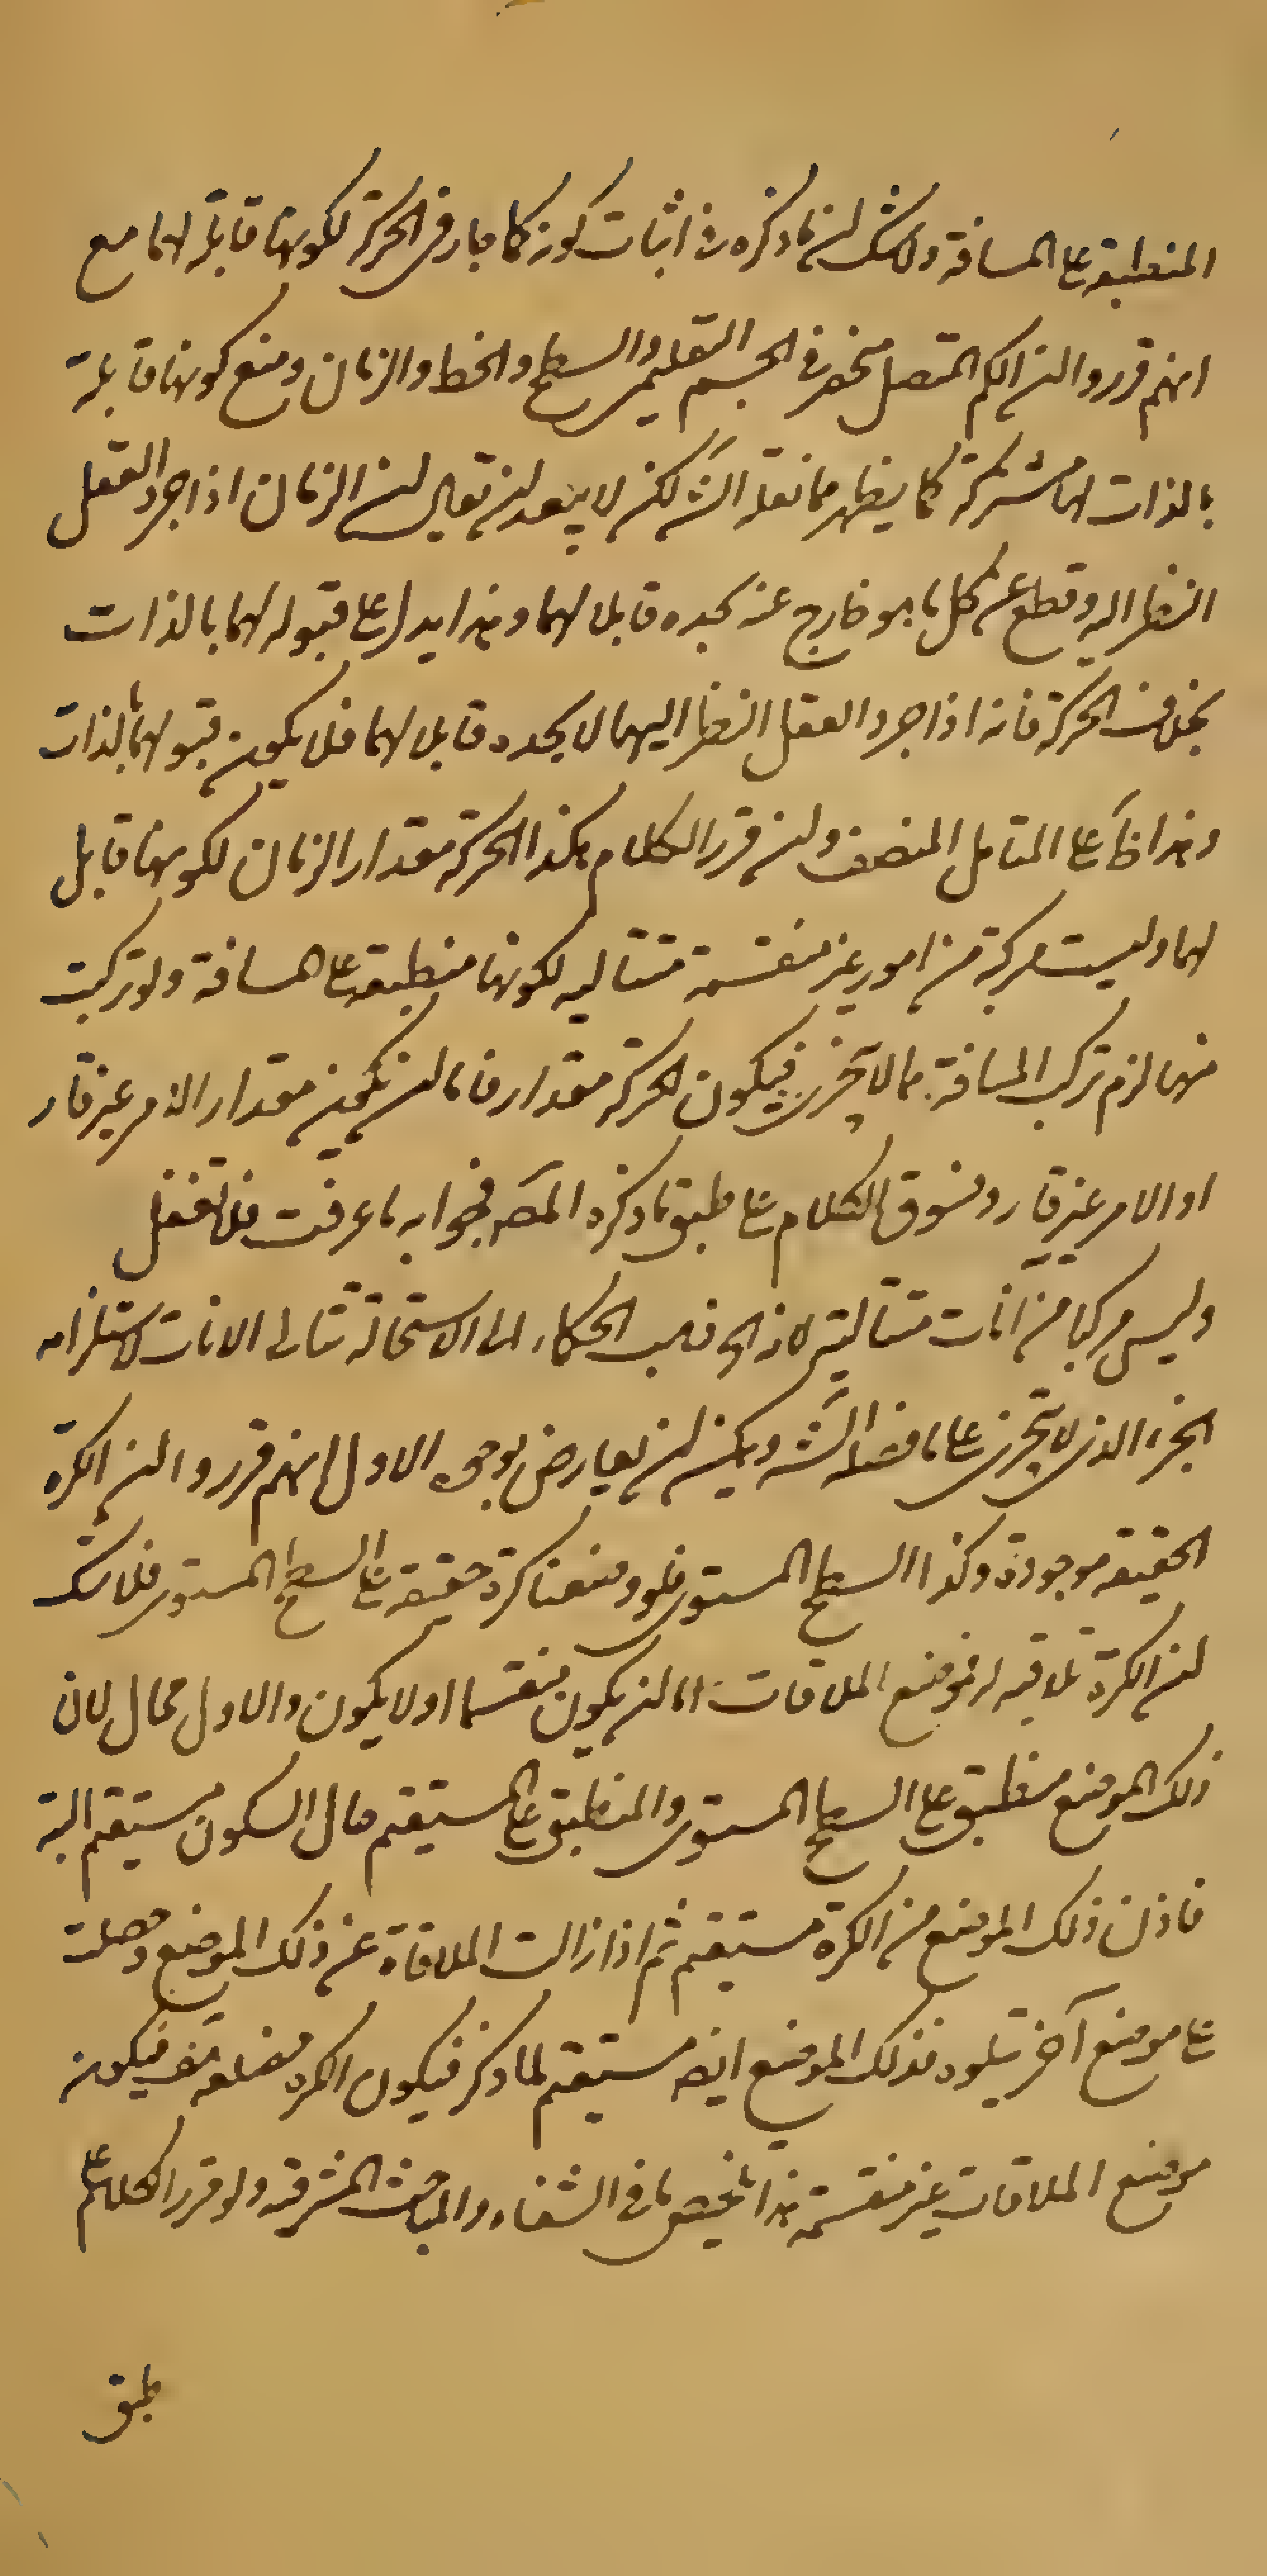 المنطبقة على المسافة ولا شك ان ما ذكره في اثبات كونه كما جار في الحركة لكونها قابلة لهما مع
انهم قرروا ان الكم المتصل منحصر في الجسم التعليمي والسطح والخط والزمان ومنع كونها قابلة
بالذات لهما مشتركة كما يظهر مما نقله الش لكن لا يبعد ان يقال ان الزمان اذا جرد العقل
النظر اليه وقطع عن كل ما هو خارج عنه يجده قابلا لهما وهذا يدل على قبوله لهما بالذات
بخلاف الحركة فانه اذا جرد العقل النظر اليها لا يجده قابلا لهما فلا يكون قبولها بالذات
وهذا ظ على المتامل المنصف ولنـ قرر الكلام هكذا الحركة مقدار الزمان لكونها قابل
لهما وليست مركبة من امور غير منقسمة متتاليه لكونها منطبقة على المسافة ولو تركبت
منها لزم تركب المسافة مما لا يتجزى فيكون الحركة مقدار فاما ان تكون مقدار الامر غير قار
او الامر غير قار ونسوق الكلام على طبق ما ذكره المص فجوابه ما عرفت فلا تغفل
وليس مركبا من آنات متتالية لانه الخ ذهب الحكماء الى الاستحالة تتالى الانات لاستلزامه
الجزء الذي لا يتجزى على ما فصله الش ويمكن ان يعارض بوجوه الاول انهم قرروا ان الكرة
الحقيقة موجودة وكذا السطح المستوى فلو وضعنا كرة حقيقة على السطح المستوى فلا شك
ان الكرة تلاقيه فموضع الملاقات اما ان يكون منقسما اولا يكون والاول محال لان
ذلك الموضع منطبق على السطح المستوى والمنطبق على المستقيم حال السكون مستقيم البتة
فاذن ذلك الموضع من الكرة مستقيم ثم اذا زالت الملاقاة عن ذلك الموضع وحصلت
على موضع آخر يتلوه فذلك الموضع ايض مستقيم لما ذكر فيكون الكره مضلعة هف فيكون
موضع الملاقات غير منقسمة هذا تلخيص ما في الشفاء والمباحث المشرقية ولو قرر الكلام على
طبق